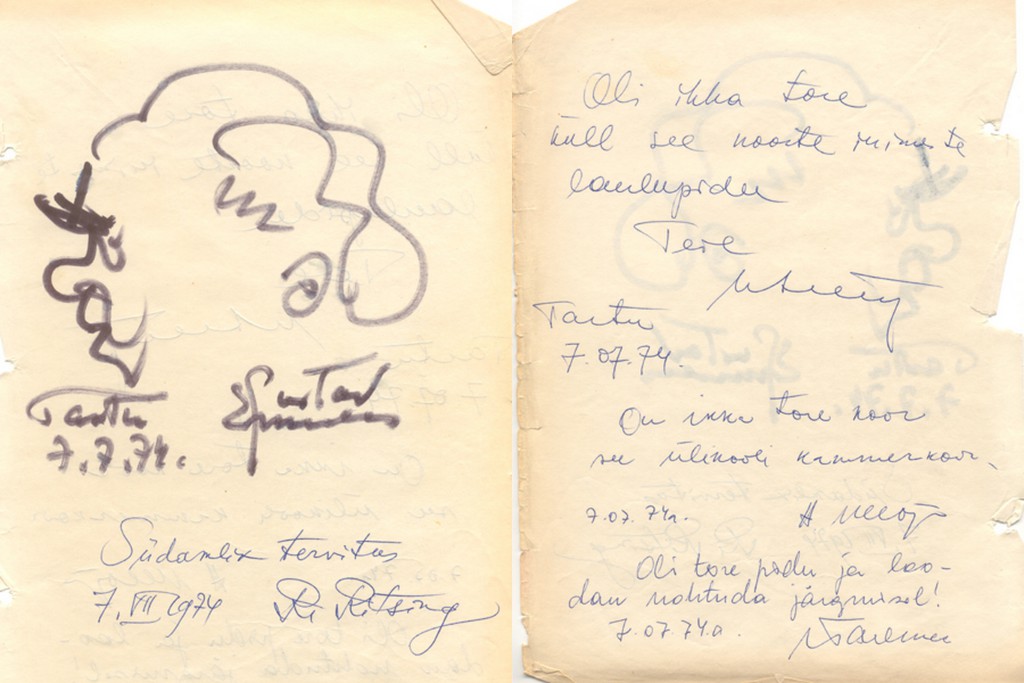 Tartu
7.7.74.
Gustav
Ernesaks
Südamlix tervitus
7. VII 1974 R. Ritsing
Oli ikka tore
küll see noorte inimeste
laulupidu
Tere
Tartu
7.07.74.
On ikka tore koor
see ülikooli kammerkoor.
7.07.74a.
Oli tore pidu ja loo-
dan kohtuda järgmisel!
7.07.74a.